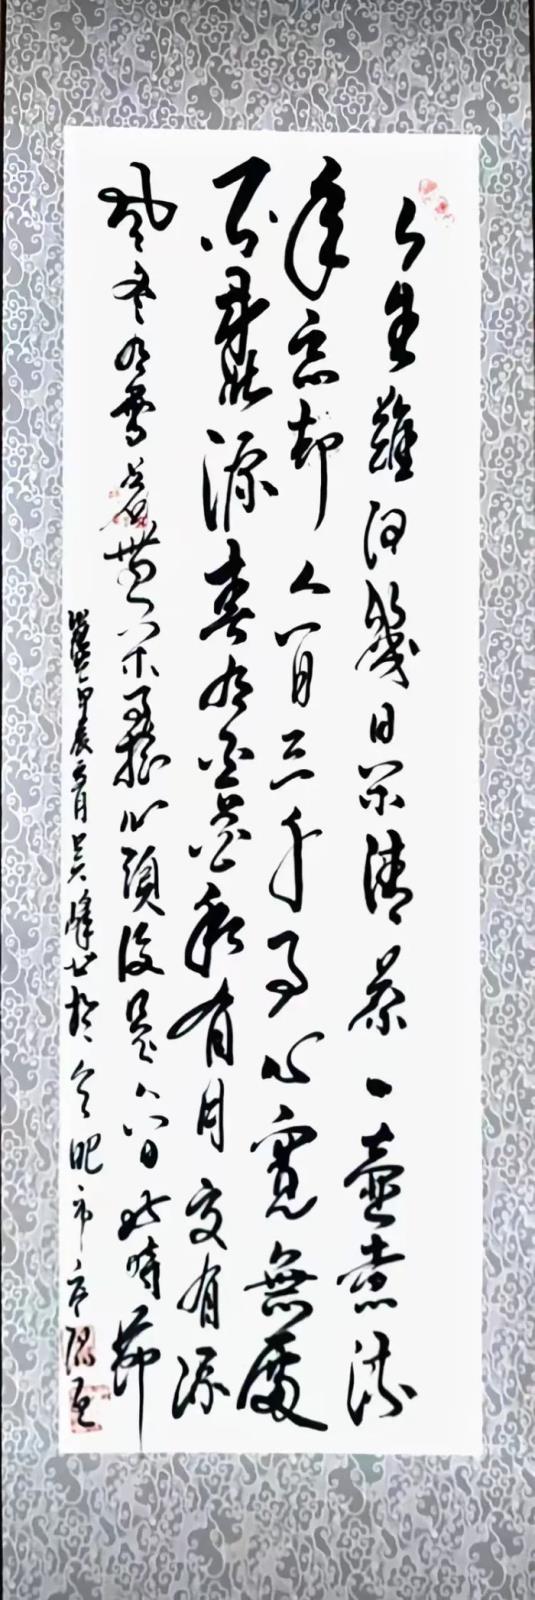 人生難得幾日閑清茶一壺煮流
年忘却人間三千事心寬無處
不桃源春有百花秋有月夏有涼
風冬有雪若無閑事掛心頭便是人間好時節
甲辰元月吳峰書於合肥市